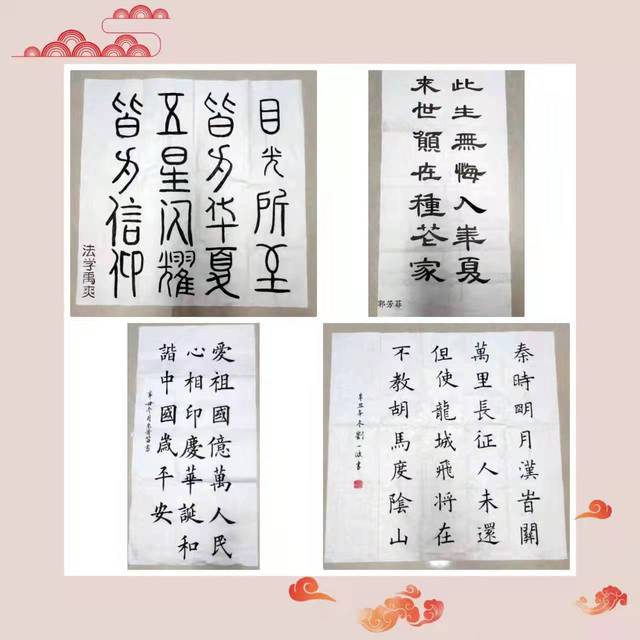 目光所至
皆为华夏
五星闪耀
皆为信仰
法学禹爽
此生無悔入華夏
来世願在種花家
郭芳菲
愛祖國億萬人民
心相印慶華誕和
諧中國歲平安
秦時明月漢旹關
萬里長征人未還
但使龍城飛将在
不教胡馬度陰山
辛丑年冬劉一波書